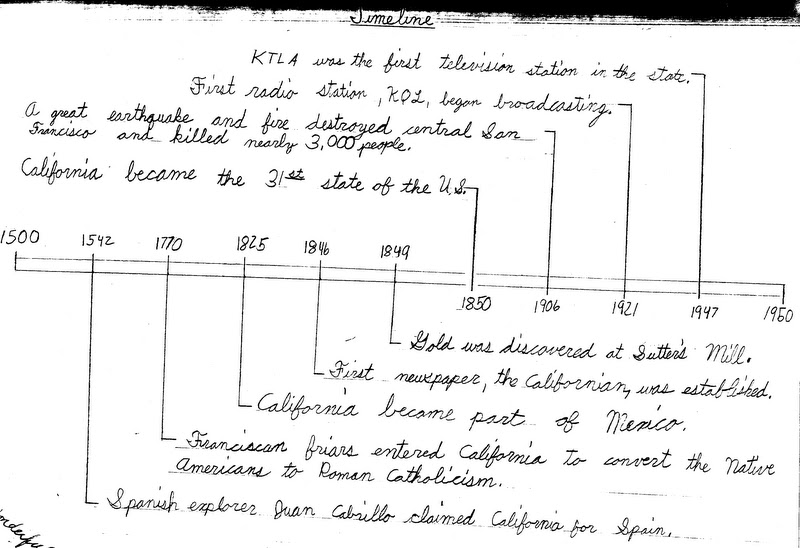 Timeline
KTLA was the first television station in the state.
First radio station, KQL, began broadcasting.
A great earthquake and fire destroyed central San
Francisco and killed nearly 3,000 people.
California became the 31st state of the U.S.
1500 1542 1770 1825 1846 1849
1850 1906 1921 1947 1950
Gold was discovered at Sutter's Mill.
First newspaper, the Californian, was established.
California became part of Mexico.
Franciscan friars entered California to convert the Native
Americans to Roman Catholicism.
Spanish explorer Juan Cabrillo claimed California for Spain.